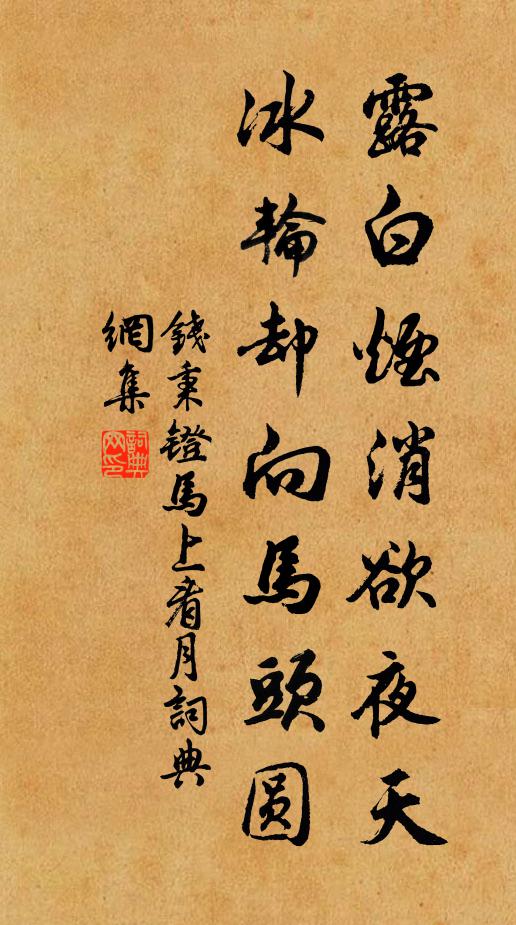 露白煙消欲夜天
冰輪却向馬頭圓
錢秉鐙馬上看月詞典
網集
詞典
网印